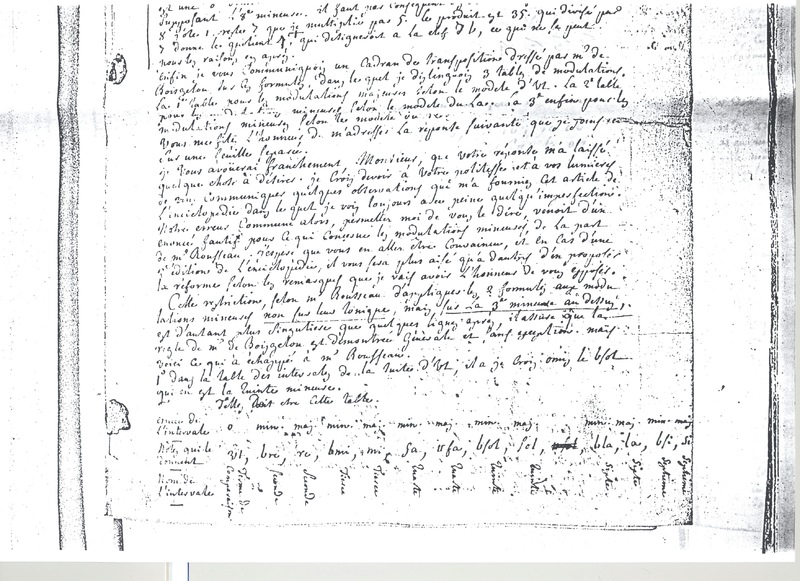 Supposant la 8e mineure. il faut
8 j'ôte 1. reste 7 que je multiplie par 5. le produit est 35. qui divisé par
7 donne le quotient qui désigneroit a la clef 7 b, ce qui ne se peut
nous la raison en après.
Enfin je vous communiquai un Cadran des transpositions dressé par mr de
Boisgelou sur les formules, dans lequel je distinguois 3 tables de modulations.
La 1ere table pour les modulations majeures selon le modele d'Ut. La 2e table
pour les mineures selon le modele du La. La 3e enfin pour les
modulations mineures selon le modele du re.
Vous me fites l'honneur de m'adresser la réponse suivante que je joins
sur une feuille separée.
je vous avoüerai franchement Monsieur, que votre réponse m'a laissé
quelque chose à désirer. je crois devoir à votre politesse et à vos lumieres
de vous communiquer quelques observations que m'a fournies cet article de
l'enciclopedie dans lequel je vois toujours avec peine quelqu'imperfection.
Notre erreur commune alors, permettez moi de vous le dire, venoit d'un
enoncé fautif pour ce qui concerne les modulations mineures, de la part
de mr Rousseau. j'espere que vous en allez être convaincu, et en cas d'une
editions de l'enciclopedie, il vous sera plus aisé qu'à d'autres d'en proposer
la reforme selon les remarques que je vais avoir l'honneur de vous exposer.
Cette restriction, selon mr Rousseau d'appliquer les 2 formules aux modu
lations mineures non sur leur tonique, mais sur la 3e mineure au dessus,
est d'autant plus singuliere que quelques lignes après, il assure que la
regle de mr de Boisgelou est démontrée générale et sans exception. mais
voici ce qui a échappé à mr Rousseau.
1° dans la table des intervales de la suite d'Ut, il a je crois omis le bsol
qui en est la quinte mineure.
Telle doit etre cette table.
de l'intervale 0 min. maj. min. maj. min. maj. min. maj. min. maj. min. maj.
Notes qui le donnent Ut, bre, re, bmi, mi, fa, #fa, bsol, sol, bla, la, bsi, si
Nom de l'intervale Nom de Comparaison Seconde Seconde Tierce Tierce Quarte Quarte Quinte Quinte Sixte Sixte Septieme Septieme